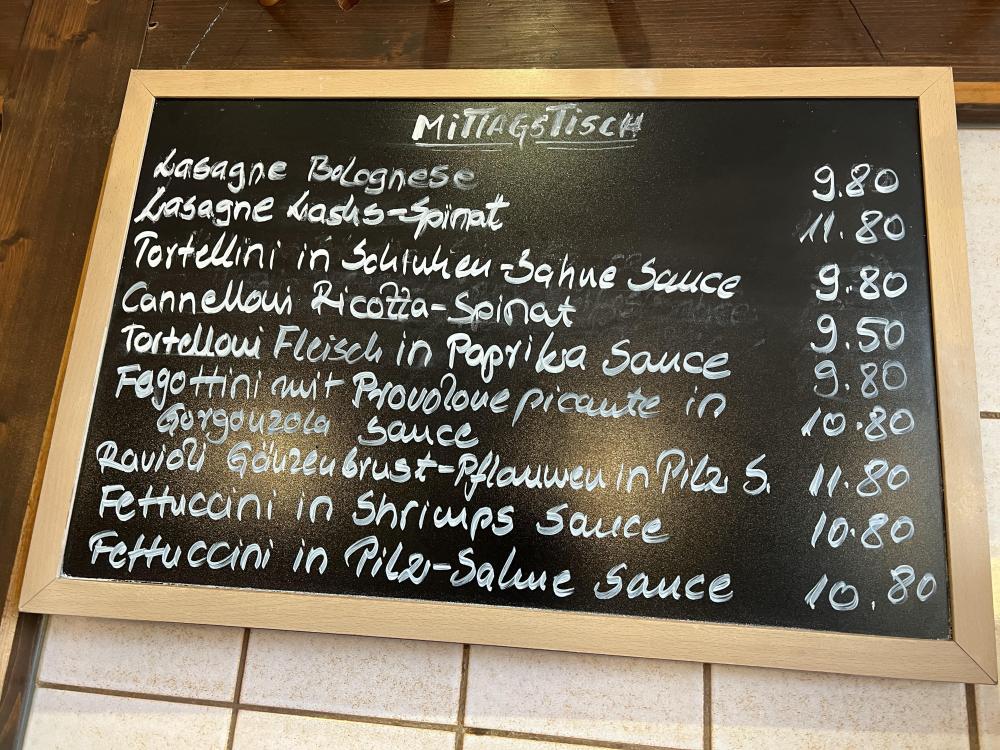 MiTTAGSTiSCH
Lasagne Bolognese 9.80
Lasagne Lachs-Spinat 11.80
Tortellini in Schinken-Sahne Sauce 9.80
Cannelloni Ricotta-Spinat 9.50
Tortelloni Fleisch in Paprika Sauce 9.80
Fagottini mit Provolone picante in 10.80
Gorgonzola Sauce
Ravioli Gänzenbrust-Pflaumen in Pilz S. 11.80
Fettuccini in Shrimps Sauce 10.80
Fettuccini in Pilz-Sahne Sauce 10.80